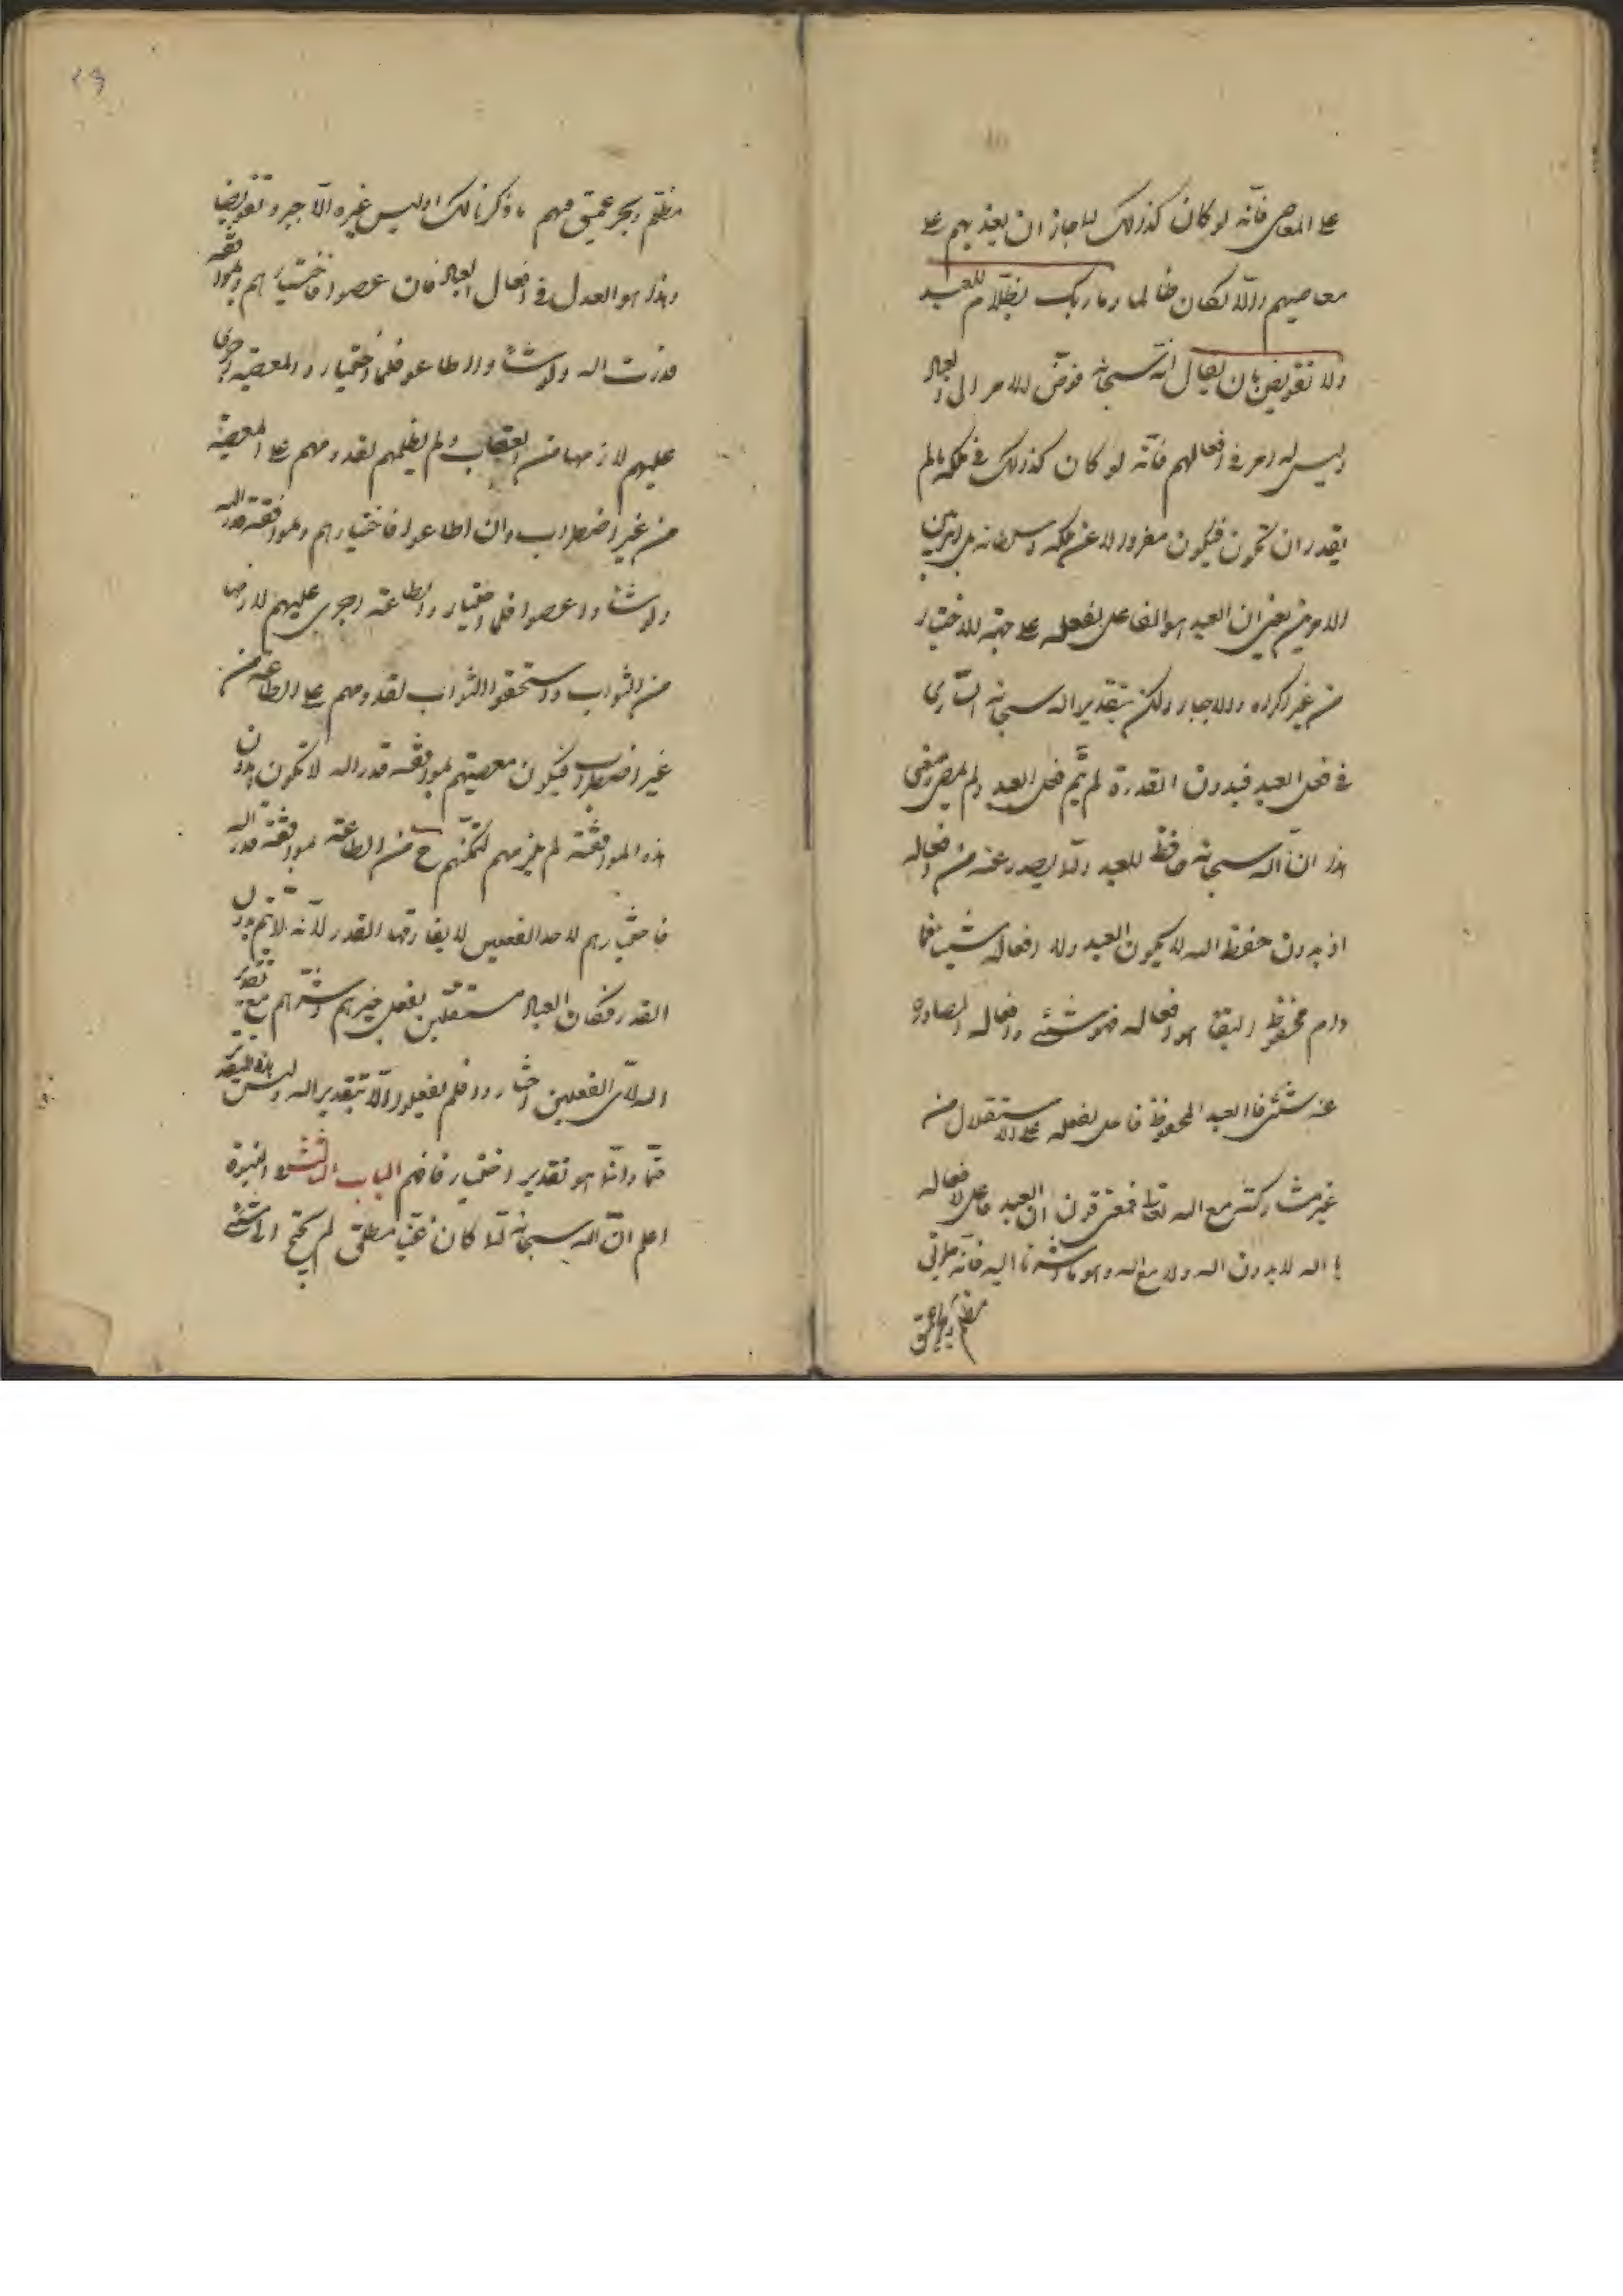 على المعاصي فانّه لو كان كذلك لما جاز ان يعذبهم على
معاصيهم والّا لكان ظالما وما ربك بظلّام للعبيد
ولا تفويض بان يقال انّه سبحانه فوّض الامر الى العباد
وليس له امر في افعالهم فانّه لو كان كذلك في ملكه ما لم
يقدر ان تكون فيكون معزولا عن ملكه وسلطانه بل امر بين
الامرين يعني ان العبد هو الفاعل لفعله على جهة الاختيار
من غير اكراه ولا اجبار ولكن بتقدير الله سبحانه الساري
في فعل العبد فبدون القدرة لم يتم فعل العبد ولم يمض ومعنى
هذا انّ الله سبحانه حافظ للعبد ولما يصدر عنه من افعاله
اذ بدون حفظ الله لا يكون العبد ولا افعاله شيئا فما
دام محفوظ البقا هو وافعاله فهو شيء وافعاله الصادرة
عنه شيء فالعبد المحفوظ فاعل لفعله على الاستقلال من
غير مشاركة مع الله تعالى فمعنى قولنا ان العبد فاعل لافعاله
بالله لا بدون الله ولا مع الله وهو ما اشرنا اليه فانه طريق
مظلم وبحر عميق
٢٩
مظلم وبحر عميق فهم ما ذكرنا لك اوليس غيره الّا جبر وتفويض
وهذا هو العدل في افعال العباد فان عصوا فاختيارهم ولموافقة
قدرت الله ولو شاؤوا لاطاعو فلما اختاروا المعصية اجرى
عليهم لازمها من العقاب ولم يظلمهم لقدومهم على المعصية
من غير اضطراب وان اطاعوا فاختيارهم ولموافقة قدر الله
ولو شاؤا عصوا فلما اختاروا الطاعة اجرى عليهم لازمها
من الثواب واستحقوا الثواب لقدومهم على الطاعة من
غير اضطراب فيكون معصيتهم لموافقة قدر الله لا تكون بدون
هذه الموافقة لم يلزمهم لتمكّنهم ح من الطاعة بموافقة قدر الله
فاختيارهم لاحد الفعلين لا يفارقها القدر لانّه لا يتم بدون
القدر فكان العباد مستقلين بفعل خيرهم وشرّهم مع تقدير
الله لاىّ الفعلين اختاروا فلم يفعلوا الّا بتقدير الله وليس هذا التقدير
حتما وانّما هو تقدير اختيار فافهم الباب الثالث النبوة
اعلم انّ الله سبحانه لما كان غنيا مطلق لم يحتج الى شيء